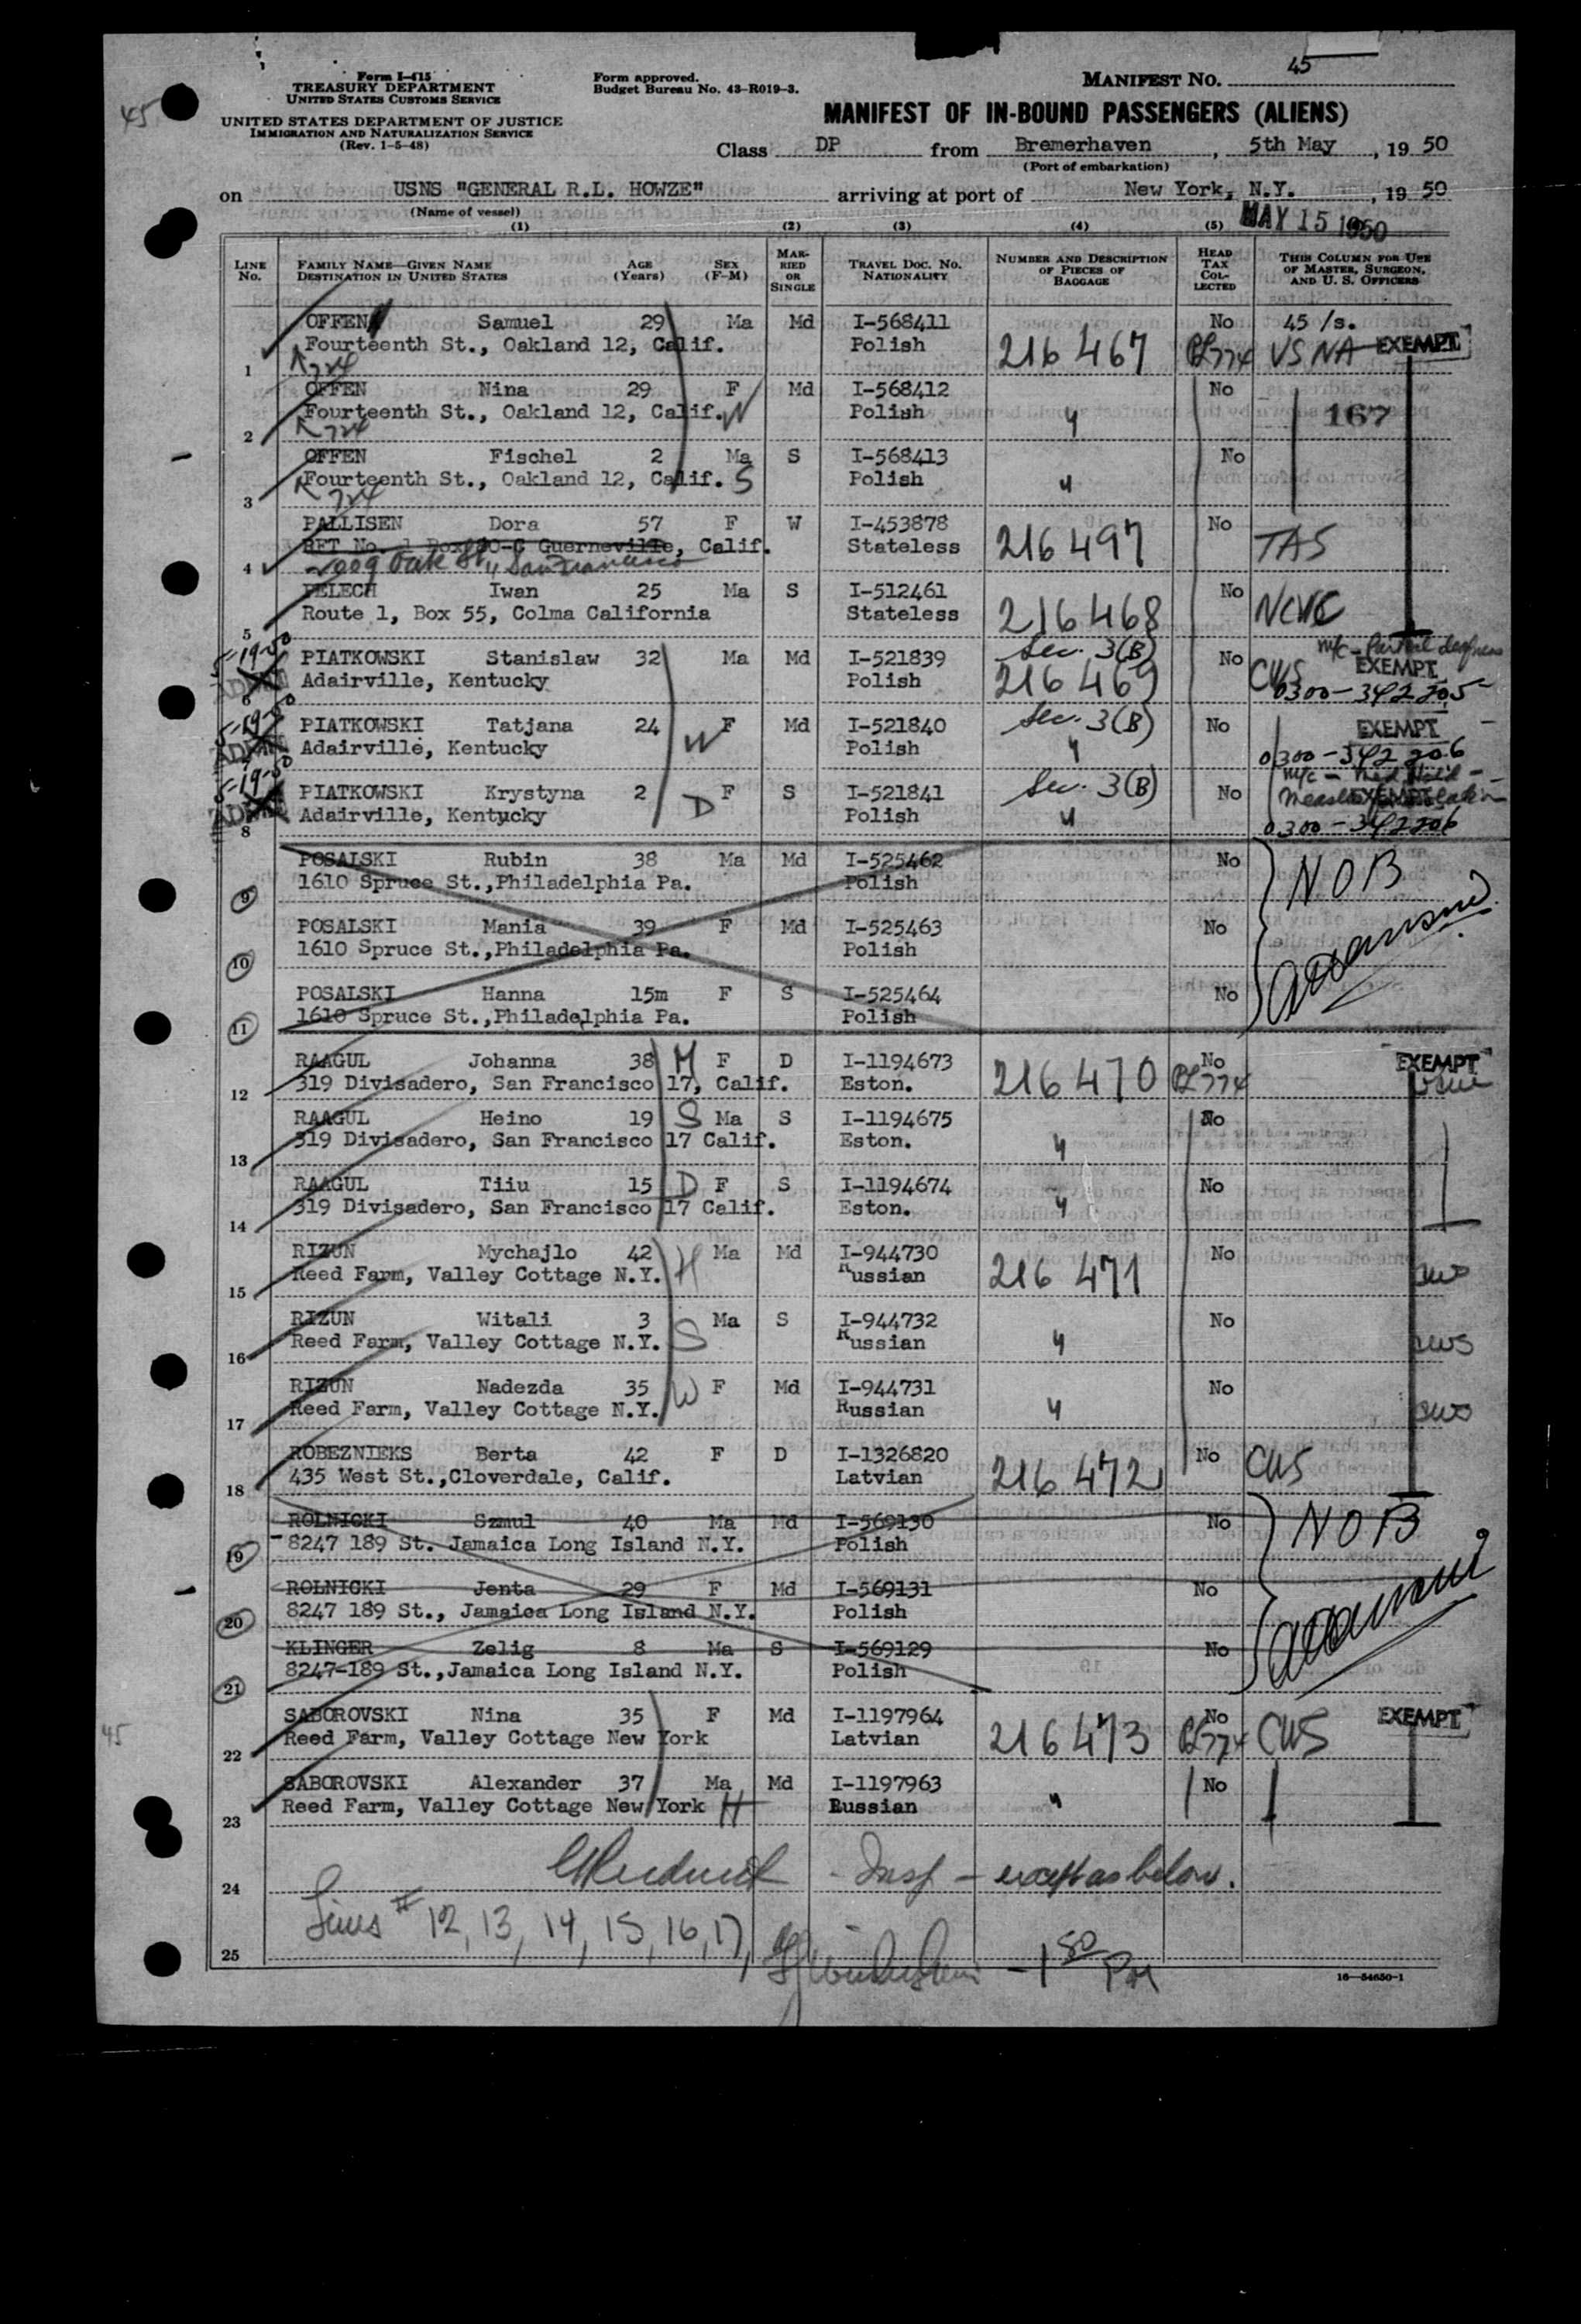 45
Form I-415
TREASURY DEPARTMENT
UNITED STATES CUSTOMS SERVICE
UNITED STATES DEPARTMENT OF JUSTICE
IMMIGRATION AND NATURALIZATION SERVICE
(Rev. 1-5-48)
Form approved.
Budget Bureau No. 43-R019-3.
MANIFEST NO. 45
MANIFEST OF IN-BOUND PASSENGERS (ALIENS)
Class DP from Bremerhaven, 5th May, 19 50
(Port of embarkation)
on USNS "GENERAL R.L. HOWZE" arriving at port of New York, N.Y., 19 50
(Name of vessel)
MAY 15 1950
(1) (2) (3) (4) (5)
LINE No. FAMILY NAME—GIVEN NAME DESTINATION IN UNITED STATES AGE (Years) SEX (F-M) MARRIED OR SINGLE TRAVEL DOC. NO. NATIONALITY NUMBER AND DESCRIPTION OF PIECES OF BAGGAGE HEAD TAX COLLECTED THIS COLUMN FOR USE OF MASTER, SURGEON, AND U. S. OFFICERS
OFFEN Samuel 29 Ma Md I-568411 No 45 /s.
1 Fourteenth St., Oakland 12, Calif. Polish 216 467 PL774 VS NA EXEMPT
724
OFFEN Nina 29 F Md I-568412 No
2 Fourteenth St., Oakland 12, Calif. W Polish " 167
724
OFFEN Fischel 2 Ma S I-568413 No
3 Fourteenth St., Oakland 12, Calif. S Polish "
724
PALLISEN Dora 57 F W I-453878 No
RFT No. 1 Box 80-C Guerneville, Calif. Stateless 216 497 TAS
4 2009 Oak St., San Francisco
PELECH Iwan 25 Ma S I-512461 No
5 Route 1, Box 55, Colma California Stateless 216 468 NCWC
5-19-50 PIATKOWSKI Stanislaw 32 Ma Md I-521839 Sec. 3(B) No m/c - Partial deafness
6 Adairville, Kentucky Polish 216 469 CWS EXEMPT
0300-342205
5-19-50 PIATKOWSKI Tatjana 24 F Md I-521840 Sec. 3(B) No EXEMPT
7 Adairville, Kentucky W Polish " 0300-342206
5-19-50 PIATKOWSKI Krystyna 2 F S I-521841 Sec. 3(B) No m/c - Med Hold -
8 Adairville, Kentucky D Polish " EXEMPT
0300-342206
POSALSKI Rubin 38 Ma Md I-525462 No
9 1610 Spruce St.,Philadelphia Pa. Polish NOB
POSALSKI Mania 39 F Md I-525463 No
10 1610 Spruce St.,Philadelphia Pa. Polish
POSALSKI Hanna 15m F S I-525464 No
11 1610 Spruce St.,Philadelphia Pa. Polish
RAAGUL Johanna 38 H F D I-1194673 No EXEMPT
12 319 Divisadero, San Francisco 17, Calif. Eston. 216 470 PL774
RAAGUL Heino 19 S Ma S I-1194675 No
13 319 Divisadero, San Francisco 17 Calif. Eston. "
RAAGUL Tiiu 15 D F S I-1194674 No
14 319 Divisadero, San Francisco 17 Calif. Eston. "
RIZUN Mychajlo 42 H Ma Md I-944730 No
15 Reed Farm, Valley Cottage N.Y. Russian 216 471 CWS
RIZUN Witali 3 Ma S I-944732 No
16 Reed Farm, Valley Cottage N.Y. S Russian " CWS
RIZUN Nadezda 35 W F Md I-944731 No
17 Reed Farm, Valley Cottage N.Y. Russian " CWS
ROBEZNIEKS Berta 42 F D I-1326820 No CWS
18 435 West St.,Cloverdale, Calif. Latvian 216 472
ROLNICKI Szmul 40 Ma Md I-569130 No NOB
19 8247 189 St. Jamaica Long Island N.Y. Polish
ROLNICKI Jenta 29 F Md I-569131 No
20 8247 189 St., Jamaica Long Island N.Y. Polish
KLINGER Zelig 8 Ma S I-569129 No
21 8247-189 St.,Jamaica Long Island N.Y. Polish
SABOROVSKI Nina 35 F Md I-1197964 No EXEMPT
22 Reed Farm, Valley Cottage New York Latvian 216 473 PL774 CWS
45
SABOROVSKI Alexander 37 Ma Md I-1197963 No
23 Reed Farm, Valley Cottage New York H Russian "
24 Insp - except as below.
Lines # 12, 13, 14, 15, 16, 17,
25 - 1 50 PM
16—54650-1